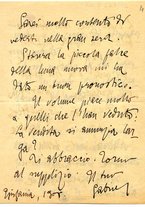 Sarei molto contento di
vederti nella gran sera.
Stasera la piccola falce
della luna nuova mi ha
dato un buon pronostico.
Il volume piace molto
a quelli che l'han veduto.
La vendita si annunzia lar-
ga?
Ti abbraccio. Torno
al supplizio. Il tuo
Gabriel